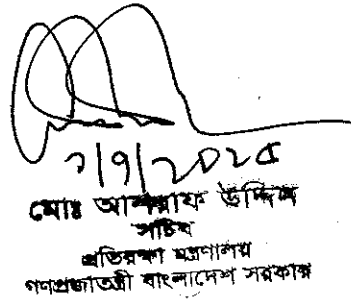 ৭/৭/২০২৫
মোঃ আশরাফ উদ্দিন
সচিব
প্রতিরক্ষা মন্ত্রণালয়
গণপ্রজাতন্ত্রী বাংলাদেশ সরকার